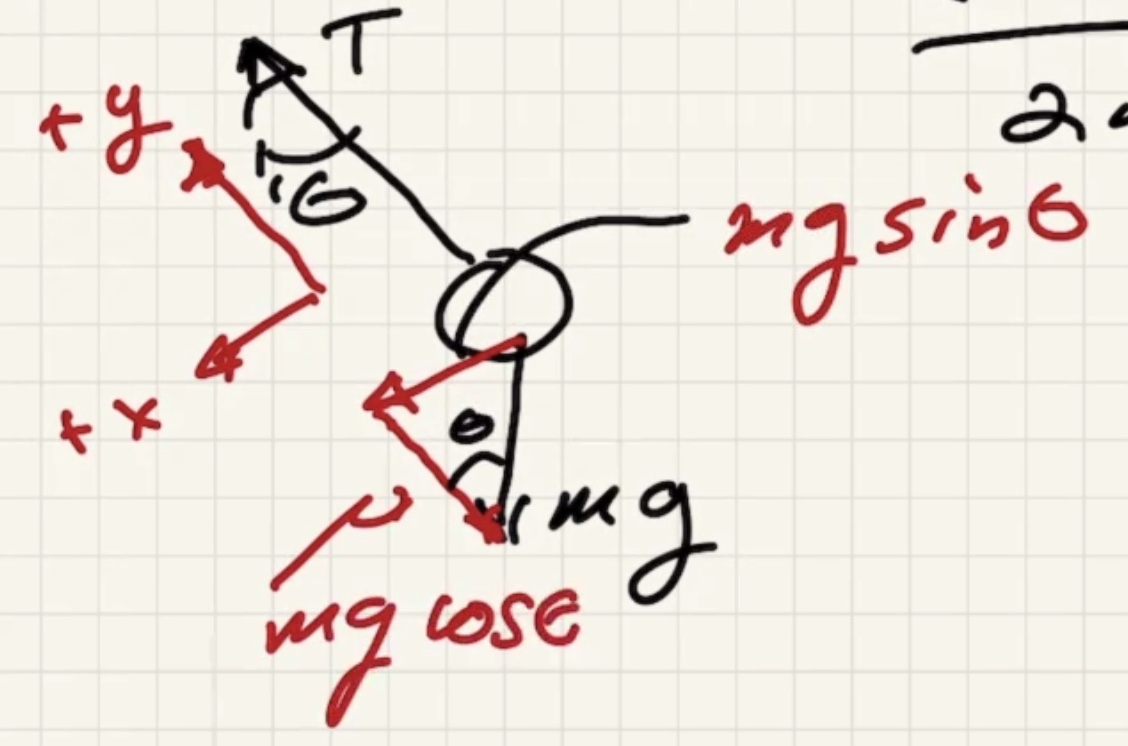 T
+ y
θ
2
mg sin θ
+ x
θ
mg
mg cos θ